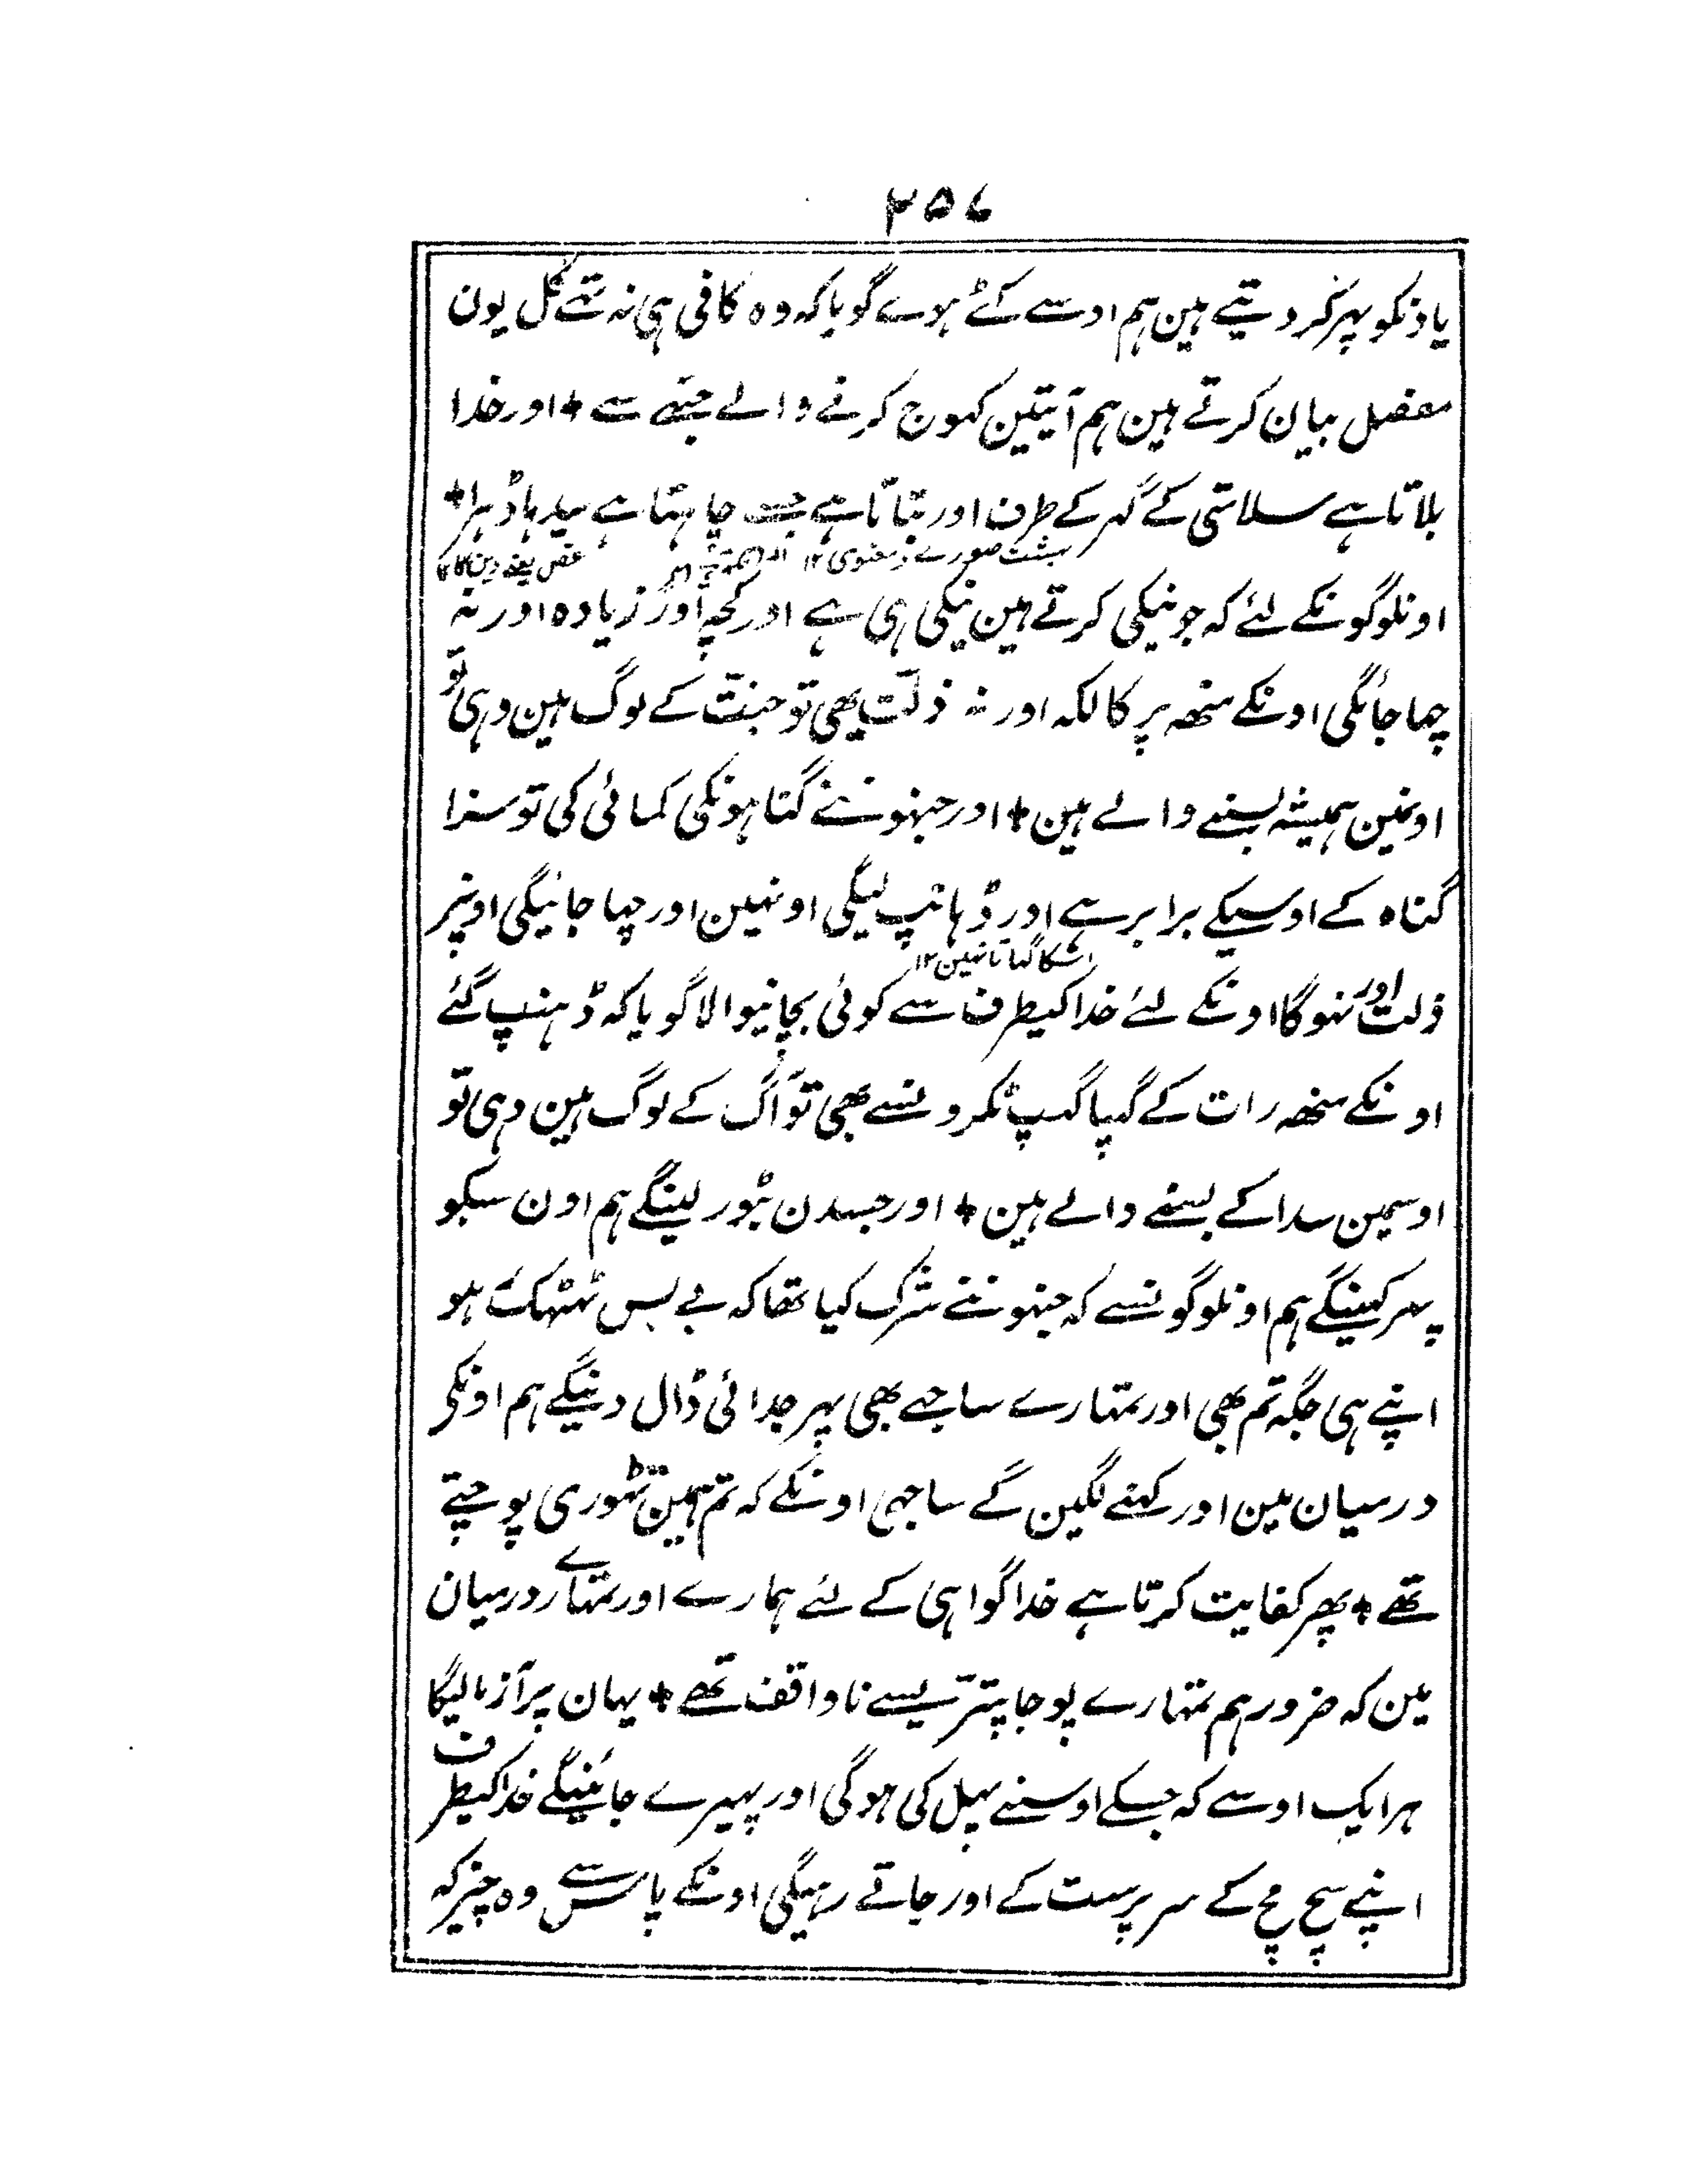 ۲۵۷
یا دنکو پہر کر دیتے ہین ہم اوسے کٹے ہوے گویا کہ وہ کافی ہی نہ تھے کل یون
مفصل بیان کرتے ہین ہم آیتین کہوج کرنے والے جتھے سے ٭ اور خدا
بلاتا ہے سلامتی کے گہر کے طرف اور بتاتا ہے جسے چاہتا ہے سیدہا ڈہرا ٭
بہشت صورے و معنوی ۱۲
اونلوگونکے لئے کہ جو نیکی کرتے ہین نیکی ہی ہے اور کچہ اور زیادہ اور نہ
چہا جائگی اونکے منھہ پر کالکہ اور نہ ذلت یھی تو جنت کے لوگ ہین وہی تو
اوسمین ہمیشہ بسنے والے ہین ٭ اور جنہونے گناہونکی کمائی کی تو سزا
گناہ کے اوسیکے برابر ہے اور ڈہانپ لیگی اونہین اور چہا جائیگی اونپر
اسکا گنا تا نہین ۱۲
ذلت اور نہوگا اونکے لئے خدا کیطرف سے کوئی بچانیوالا گویا کہ ڈہنپ گئے
اونکے منھہ رات کے گہپا گہپ ٹکرونسے یھی تو آگ کے لوگ ہین وہی تو
اوسمین سدا کے بسنے والے ہین ٭ اور جسدن بٹور لینگے ہم اون سبکو
پہر کہینگے ہم اونلوگونسے کہ جنہوننے شرک کیا تھا کہ بے بس ٹہٹہکے ہو
اپنے ہی جگہ تم بھی اور تمہارے ساجہے بھی پہر جدائی ڈال دینگے ہم اونکی
درمیان مین اور کہنے لگین گے ساجہی اونکے کہ تم ہمین تہوری پوجتے
تھے ٭ پھر کفایت کرتا ہے خدا گواہی کے لئے ہمارے اور تمہارے درمیان
مین کہ ضرور ہم تمہارے پوجا پتر یسے ناواقف تھے ٭ یہان پر آزمالیگا
ہر ایک اوسے کہ جسکے اوسنے پہل کی ہوگی اور پہیرے جائینگے خدا کیطرف
اپنے سچ مچ کے سرپرست کے اور جاتے رہیگی اونکے پاس سے وہ چیز کہ